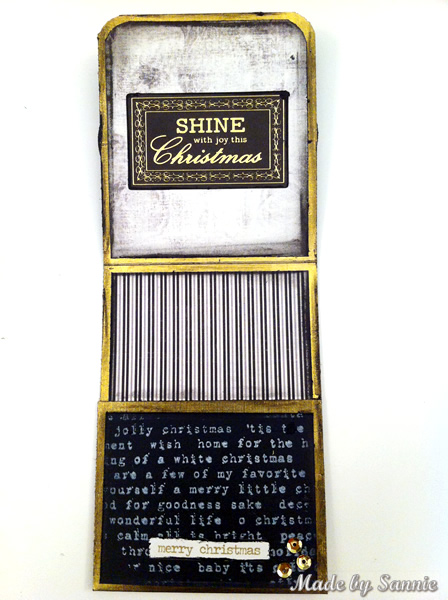 SHINE
with joy this
Christmas
jolly christmas 'tis t e
ent wish home for the h
ng of a white christmas
are a few of my favorite
yourself a merry little ch
d for goodness sake dec
wonderful life o christm
calm all is bright peac
thr
merry christmas
or nice baby its
Made by Sannie